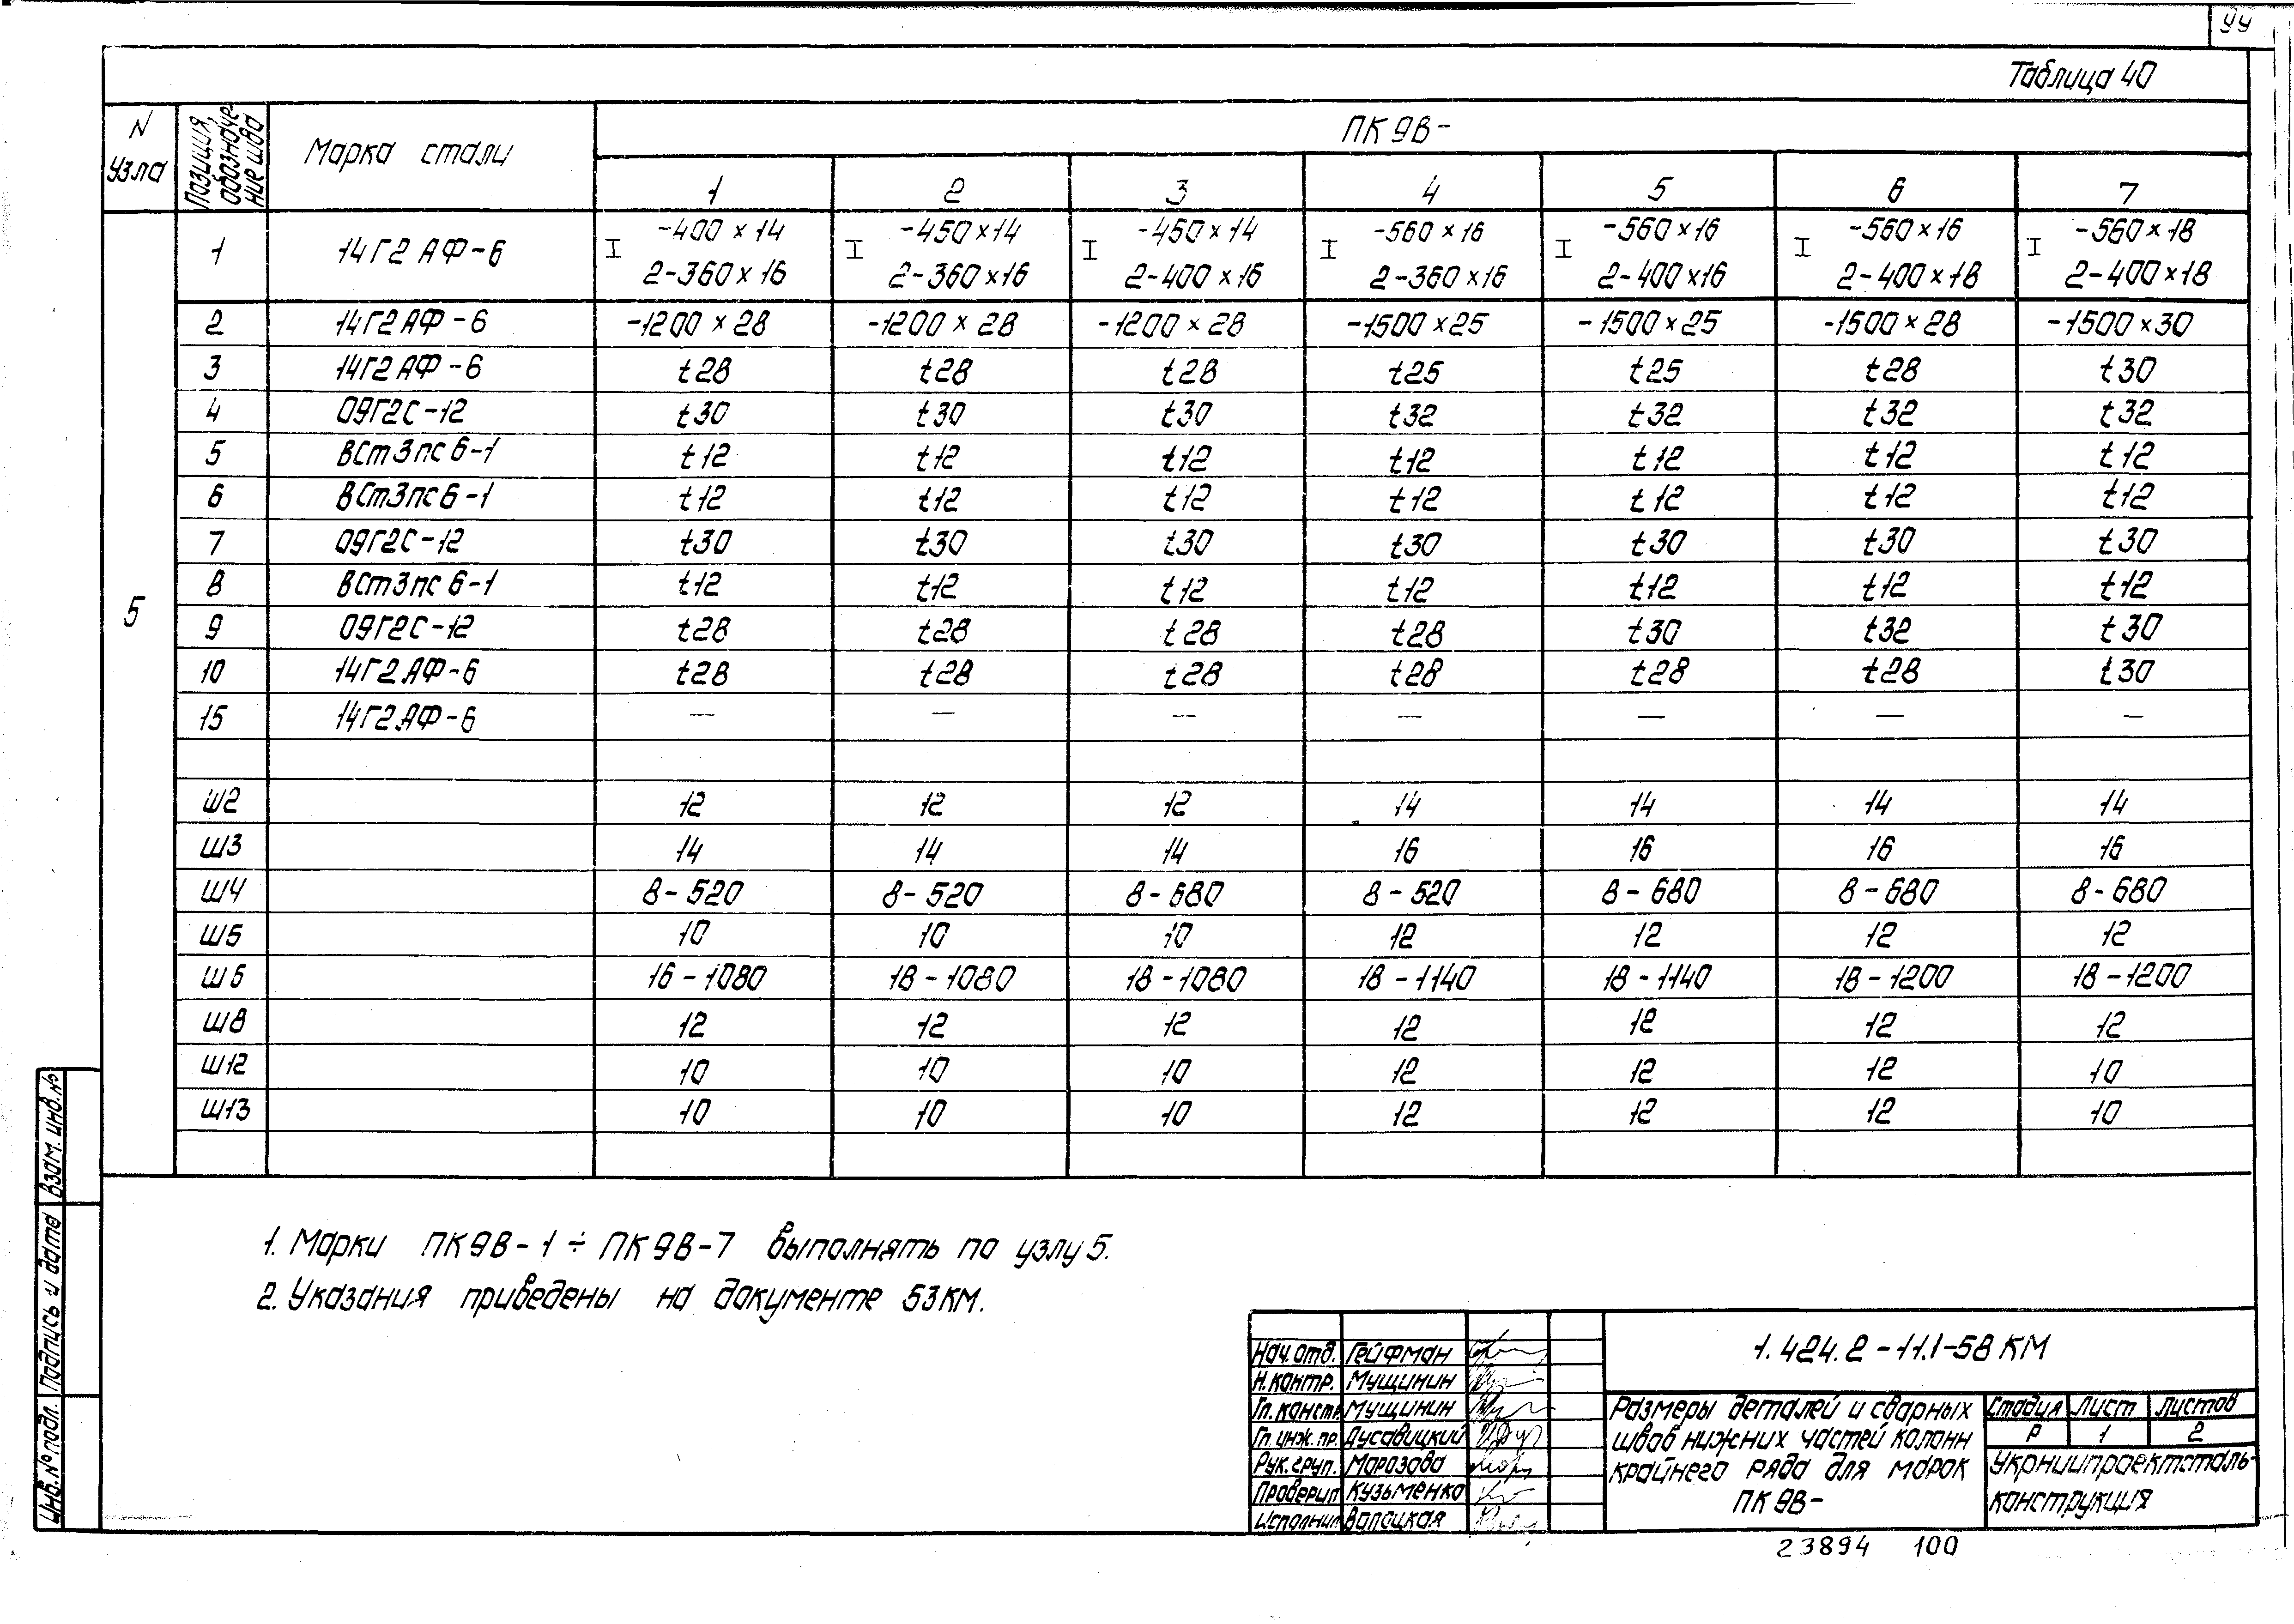 99
Таблица 40
N узла | Позиция, обозначение шва | Марка стали | ПК 9В-
1 | 2 | 3 | 4 | 5 | 6 | 7
5
1 | 14Г2АФ-6 | I -400×14 2-360×16 | I -450×14 2-360×16 | I -450×14 2-400×16 | I -560×16 2-360×16 | I -560×16 2-400×16 | I -560×16 2-400×18 | I -560×18 2-400×18
2 | 14Г2АФ-6 | -1200×28 | -1200×28 | -1200×28 | -1500×25 | -1500×25 | -1500×28 | -1500×30
3 | 14Г2АФ-6 | t28 | t28 | t28 | t25 | t25 | t28 | t30
4 | 09Г2С-12 | t30 | t30 | t30 | t32 | t32 | t32 | t32
5 | ВСт3пс6-1 | t12 | t12 | t12 | t12 | t12 | t12 | t12
6 | ВСт3пс6-1 | t12 | t12 | t12 | t12 | t12 | t12 | t12
7 | 09Г2С-12 | t30 | t30 | t30 | t30 | t30 | t30 | t30
8 | ВСт3пс6-1 | t12 | t12 | t12 | t12 | t12 | t12 | t12
9 | 09Г2С-12 | t28 | t28 | t28 | t28 | t30 | t32 | t30
10 | 14Г2АФ-6 | t28 | t28 | t28 | t28 | t28 | t28 | t30
15 | 14Г2АФ-6 | — | — | — | — | — | — | —
Ш2 | 12 | 12 | 12 | 14 | 14 | 14 | 14
Ш3 | 14 | 14 | 14 | 16 | 16 | 16 | 16
Ш4 | 8-520 | 8-520 | 8-680 | 8-520 | 8-680 | 8-680 | 8-680
Ш5 | 10 | 10 | 10 | 12 | 12 | 12 | 12
Ш6 | 16-1080 | 18-1080 | 18-1080 | 18-1140 | 18-1140 | 18-1200 | 18-1200
Ш8 | 12 | 12 | 12 | 12 | 12 | 12 | 12
Ш12 | 10 | 10 | 10 | 12 | 12 | 12 | 10
Ш13 | 10 | 10 | 10 | 12 | 12 | 12 | 10
1. Марки ПК9В-1÷ПК9В-7 выполнять по узлу 5.
2. Указания приведены на документе 53КМ.
Инв.№ подл. Подпись и дата Взам.инв.№
Нач.отд. Гейфман
Н.контр. Мущинин
Гл.констр. Мущинин
Гл.инж.пр. Дусавицкий
Рук.груп. Морозова
Проверил Кузьменко
Исполнил Вапацкая
1.424.2-11.1-58 КМ
Размеры деталей и сварных
швов нижних частей колонн
крайнего ряда для марок
ПК 9В-
Стадия | Лист | Листов
Р | 1 | 2
Укрниипроектсталь-
конструкция
23894 100